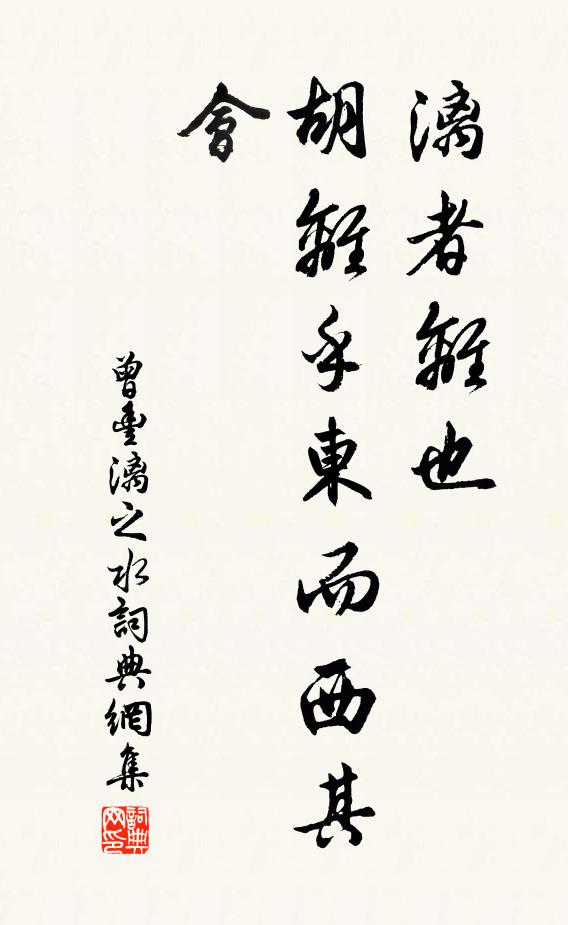 漓者離也
胡離乎東而西其
會
曾豐漓之水詞典網集
詞典
网印